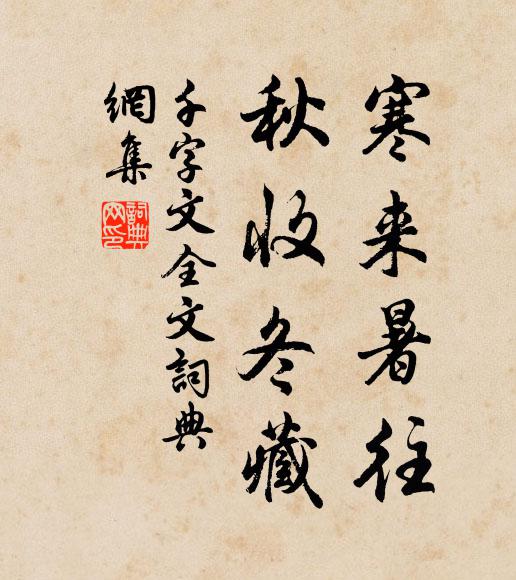 寒来暑往
秋收冬藏
千字文全文詞典
網集
詞典网印